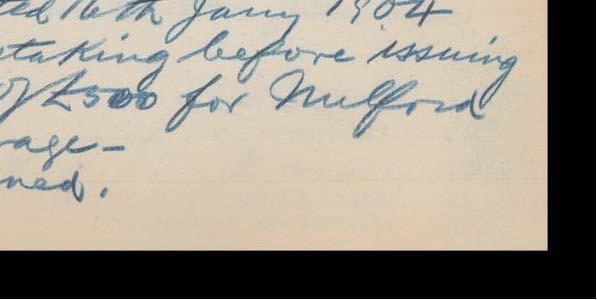 ted 16th Jany 1904
staking before issuing
of £500 for Milford
age-
ned.